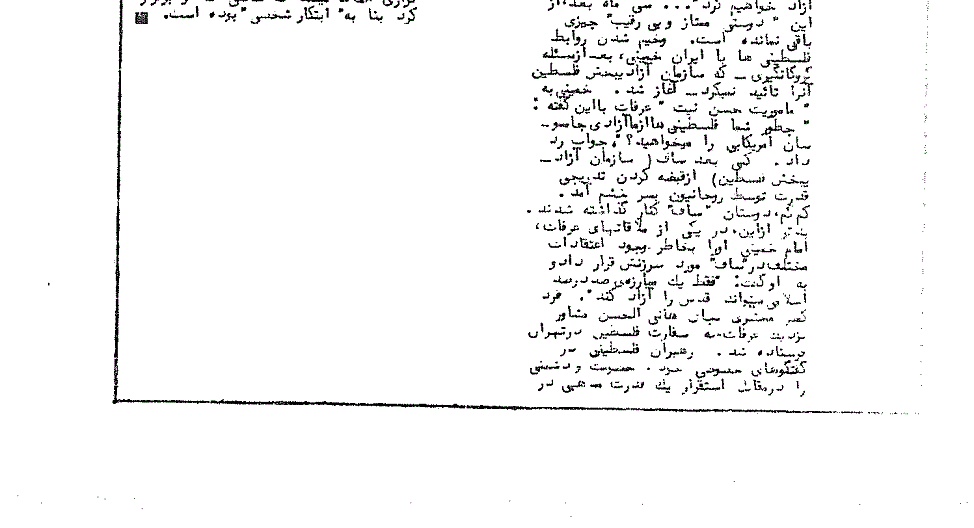 آزاد خواهیم کرد"... سی ماه بعد، از
این " دوستی ممتاز و بی رقیب" چیزی
باقی نمانده است. وخیم شدن روابط
فلسطینی ها با ایران خمینی، بعد ازمسئله
گروگانگیری ــ که سازمان آزادیبخش فلسطین
آنرا تائید نمیکرد ــ آغاز شد. خمینی به
" ماموریت حسن نیت " عرفات با این گفته :
" چطور شما فلسطینی ها ازما آزادی جاسو‌ــ
سان آمریکایی را میخواهید؟ "، جواب رد
داد. کمی بعد ساف ( سازمان آزاد‌ــ
یبخش فلسطین) ازقبضه کردن تدریجی
قدرت توسط روحانیون بسر خشم آمد.
کم کم، دوستان "ساف" کنار گذاشته شدند.
ازاین، در یکی از ملاقاتهای عرفات،
امام خمینی اورا بخاطر وجود اعتقادات
مختلف در"ساف" مورد سرزنش قرار داد و
به او گفت: "فقط یک مبارزه‌ی صد درصد
اسلامی میتواند قدس را آزاد کند". فرد
کمتر هانی الحسن مشاور
نزدیک عرفات به سفارت فلسطین درتهران
فرستاده شد. رهبران فلسطینی در
گفتگوهای خصوصی خود. خصومت ودشمنی
را درمقابل استقرار یک قدرت مذهبی در
کرد بنا به" ابتکار شخصی "بوده است.